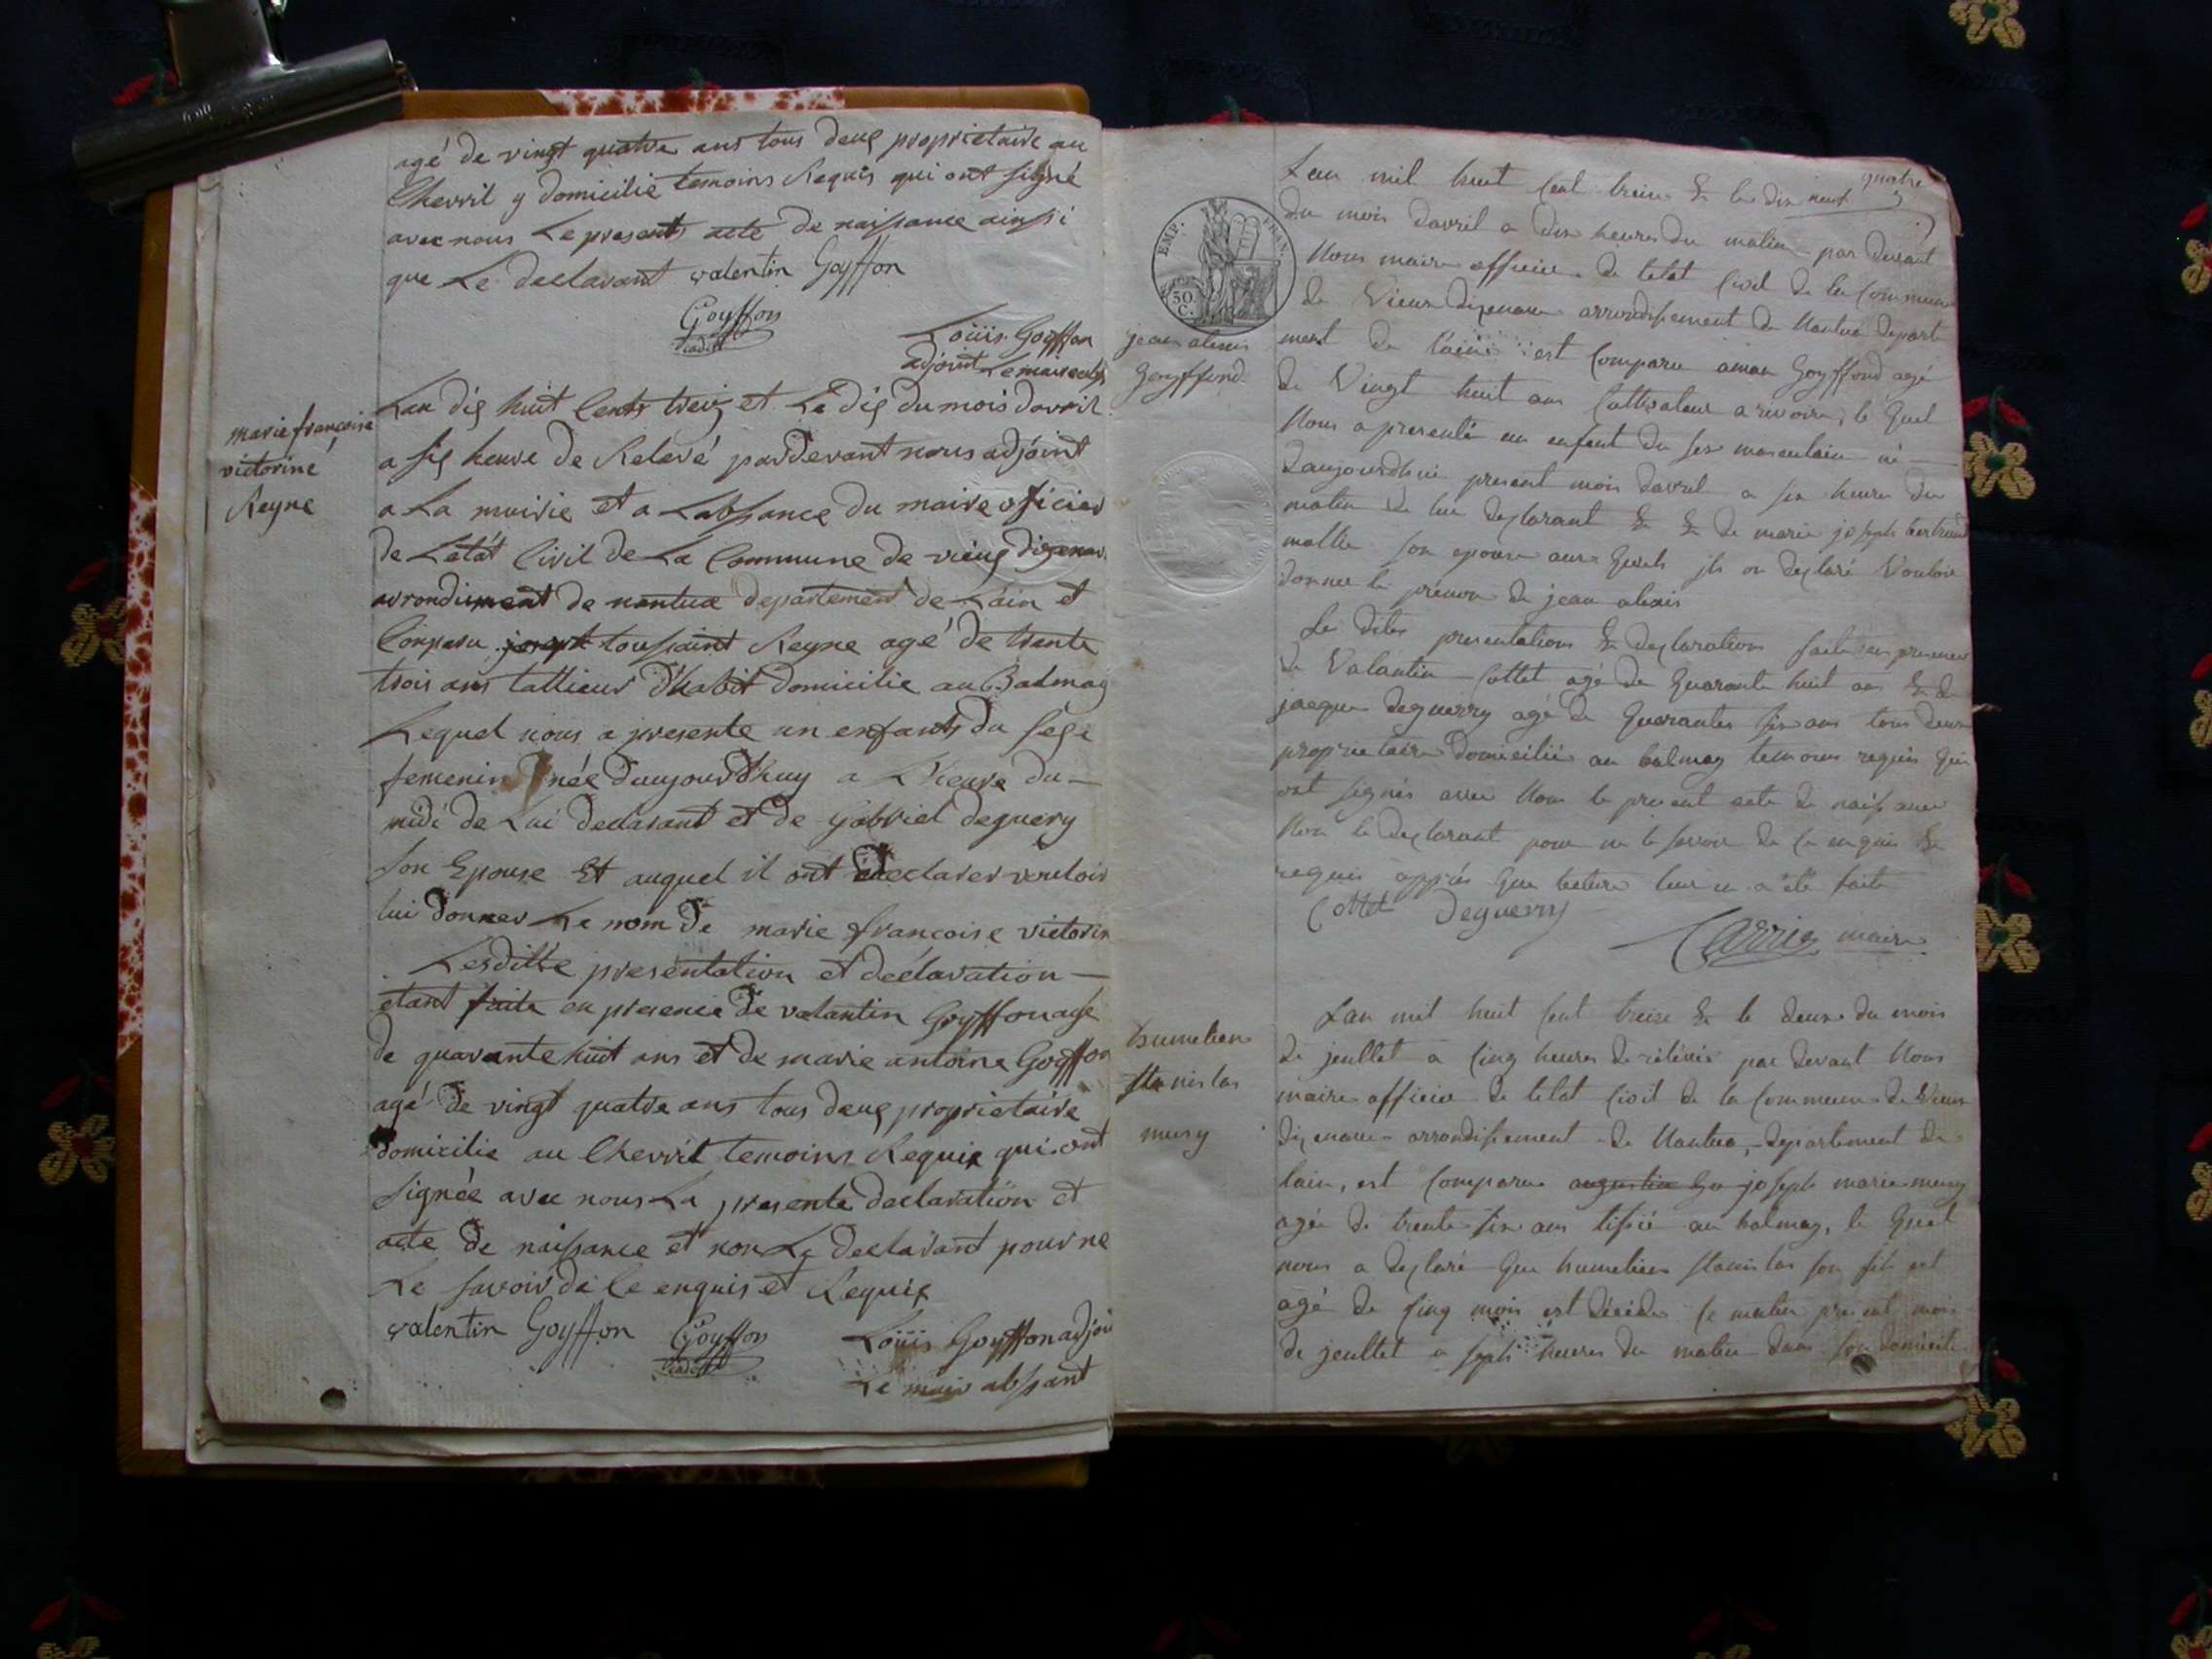 agé de vingt quatre ans tous deux proprietaire au
Chevril y domicilie temoins Requis qui ont signé
avec nous Le presents acte de naissance ainssi
que Le declarant valentin Goyffon
Goyffon
Loüis Goyffon
adjoint Le maire abs
marie françoise
victorine
Reyne
Lan dix huit Cents treiz et Le dix du mois davril
a six heure de Relevé pardevant nous adjoint
a La mairie et a Labssance du maire oficier
de Létat Civil de La Commune de vieux dizenav
arrondisment de nantua departement de Lain et
Comparu joseph toussaint Reyne agé de trente
trois ans tallieur d'habit domicilie au Balmay
Lequel nous a presente un enfants du sexe
femenin née daujourdhuy a L'heure du
midi de Lui declarant et de gabriel deguery
son Epouse Et auquel il ont declarer vouloir
lui donner Le nom de marie francoise victorin
Lesditte presentation et declaration
etant faite en presence de valantin Goyffon age
de quarante huit ans et de marie antoine Goyffon
agé de vingt quatre ans tous deux proprietaire
domicilie au Chevril temoins Requix qui ont
signée avec nous La presente declaration et
acte de naissance et non Le declarant pour ne
Le savoir de Ce enquis et Requix
valentin Goyffon Goyffon Loüis Goyffon adjoi
Le mair abssant
quatre
EMP. FRAN.
50. C.
jean alexis
Goyffond
Lan mil huit cent treize & le dix neuf
du mois davril a dix heures du matin par devant
Nous maire officier de letat civil de la Commune
de Vieux dizenave arrondissement de Nantua depart
ment de lain est Comparu aman Goyffond agé
de Vingt huit ans Cultivateur a revoire, le quel
Nous a presenté un enfent du sex masculain né
daujourdhui present mois davril a six heures du
matin de lui declarant & & de marie joseph bertrand
mollie son epouse auxquels ils on declaré Vouloir
donner le prénom de jean alexis
Le dites presentations & declaration faite en presence
de Valantin Cottet agé de quarante huit ans & de
jacque deguerry agé de quarantes six ans tous deux
proprietaire domicilié au balmay temoins requis qui
ont signés avec Nous le present acte de naissance
Non le declarant pour ne le savoir de ce enquis &
requis apprés que lecture leur en a été faite
Cottet Deguerry
Carrier maire
humelien
stanislas
musy
Lan mil huit cent treize & le deuxe du mois
de jeullet a cinq heures de relévée par devant Nous
maire officier de letat civil de la Commune de Vieux
dizenave arrondissement de Nantua, departement de
lain, est Comparu augustin Go joseph marie musy
agée de trente six ans tissié au balmay, le quel
nous a declaré que humelien stanislas son fils est
agé de cinq mois est décédé ce matin present mois
de jeullet a sept heures du matin dans son domicile